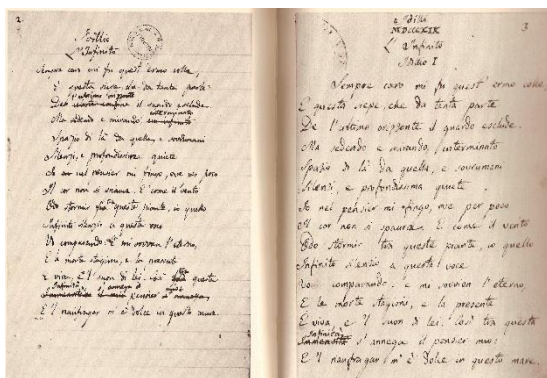 2.
Idillio
L'Infinito
Sempre caro mi fu quest' ermo colle,
E questa siepe, che da tanta parte
De l'ultimo orizzonte il guardo esclude.
Ma sedendo e mirando interminato
Spazio di là da quella, e sovrumani
Silenzi, e profondissima quiete
Io nel pensier mi fingo, ove per poco
Il cor non si spaura. E come il vento
Odo stormir fra queste piante, io quello
Infinito silenzio a questa voce
Vo comparando: e mi sovvien l'eterno,
E le morte stagioni, e la presente
E viva, e 'l suon di lei. Così tra questa
Infinità s'annega il pensier mio
E 'l naufragar m'è dolce in questo mare.
3
MDCCCXIX
L'Infinito
I
Sempre caro mi fu quest' ermo colle
E questa siepe, che da tanta parte
De l'ultimo orizzonte il guardo esclude.
Ma sedendo e mirando, interminato
Spazio di là da quella, e sovrumani
Silenzi, e profondissima quiete
Io nel pensier mi fingo, ove per poco
Il cor non si spaura. E come il vento
Odo stormir tra queste piante, io quello
Infinito silenzio a questa voce
Vo comparando: e mi sovvien l'eterno,
E le morte stagioni, e la presente
E viva, e 'l suon di lei. Così tra questa
Infinità
Immensità s'annega il pensier mio:
E 'l naufragar m'è dolce in questo mare.